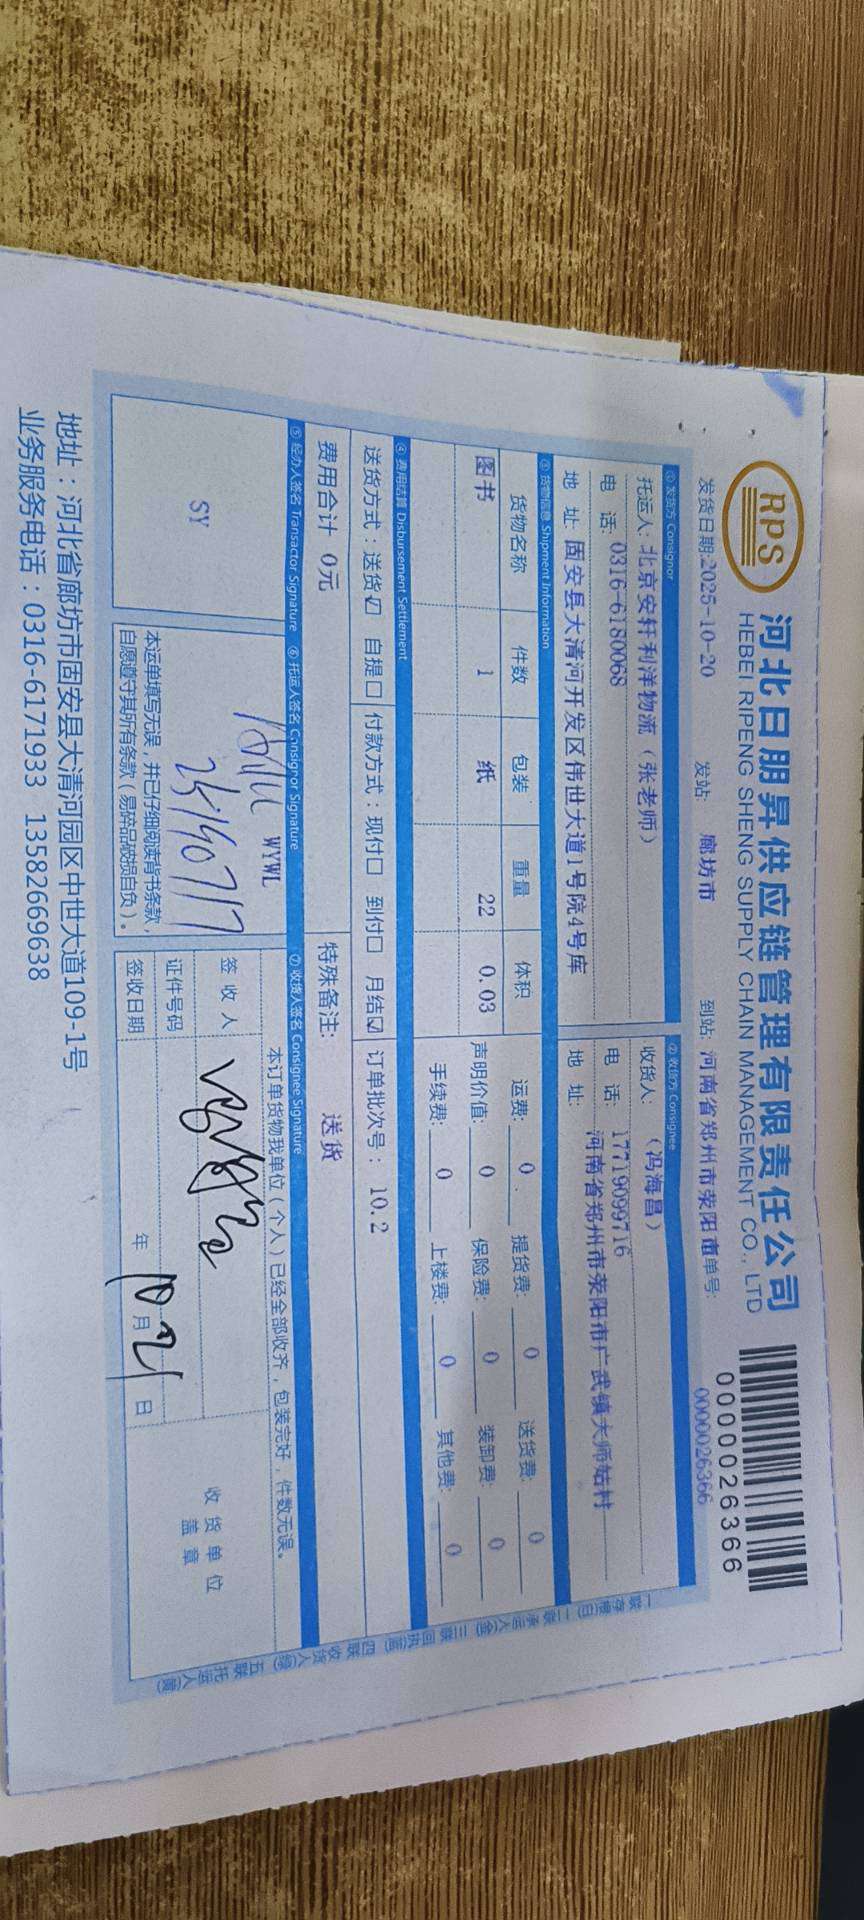 RPS
河北日朋昇供应链管理有限责任公司
HEBEI RIPENG SHENG SUPPLY CHAIN MANAGEMENT CO., LTD
0000026366
发货日期:2025-10-20 发站: 廊坊市 到站: 河南省郑州市荥阳市 单号: 0000026366
① 发货方 Consignor
托运人: 北京安轩利洋物流 (张老师)
电 话: 0316-6180068
地 址: 固安县大清河开发区伟世大道1号院4号库
② 收货方 Consignee
收货人: (冯海昌)
电 话: 17719099716
地 址: 河南省郑州市荥阳市广武镇大师姑村
③ 货物信息 Shipment Information
货物名称 件数 包装 重量 体积
图书 1 纸 22 0.03
运费: 0 提货费: 0 送货费: 0
声明价值: 0 保险费: 0 装卸费: 0
手续费: 0 上楼费: 0 其他费: 0
④ 费用结算 Disbursement Settlement
送货方式: 送货☑ 自提□ 付款方式: 现付□ 到付□ 月结☑ 订单批次号: 10.2
费用合计 0元 特殊备注: 送货
⑤ 经办人签名 Transactor Signature
SY
⑥ 托运人签名 Consignor Signature
WYWL
本运单填写无误,并已仔细阅读背书条款,
自愿遵守其所有条款(易碎品破损自负)。
⑦ 收货人签名 Consignee Signature
本订单货物我单位(个人)已经全部收齐,包装完好,件数无误。
签 收 人
证件号码
签收日期 年 10 月 21 日
收 货 单 位
盖 章
一联存根(白) 二联承运人(金) 三联回执(蓝) 四联收货人(绿) 五联托运人(黄)
地址:河北省廊坊市固安县大清河园区中世大道109-1号
业务服务电话:0316-6171933 13582669638